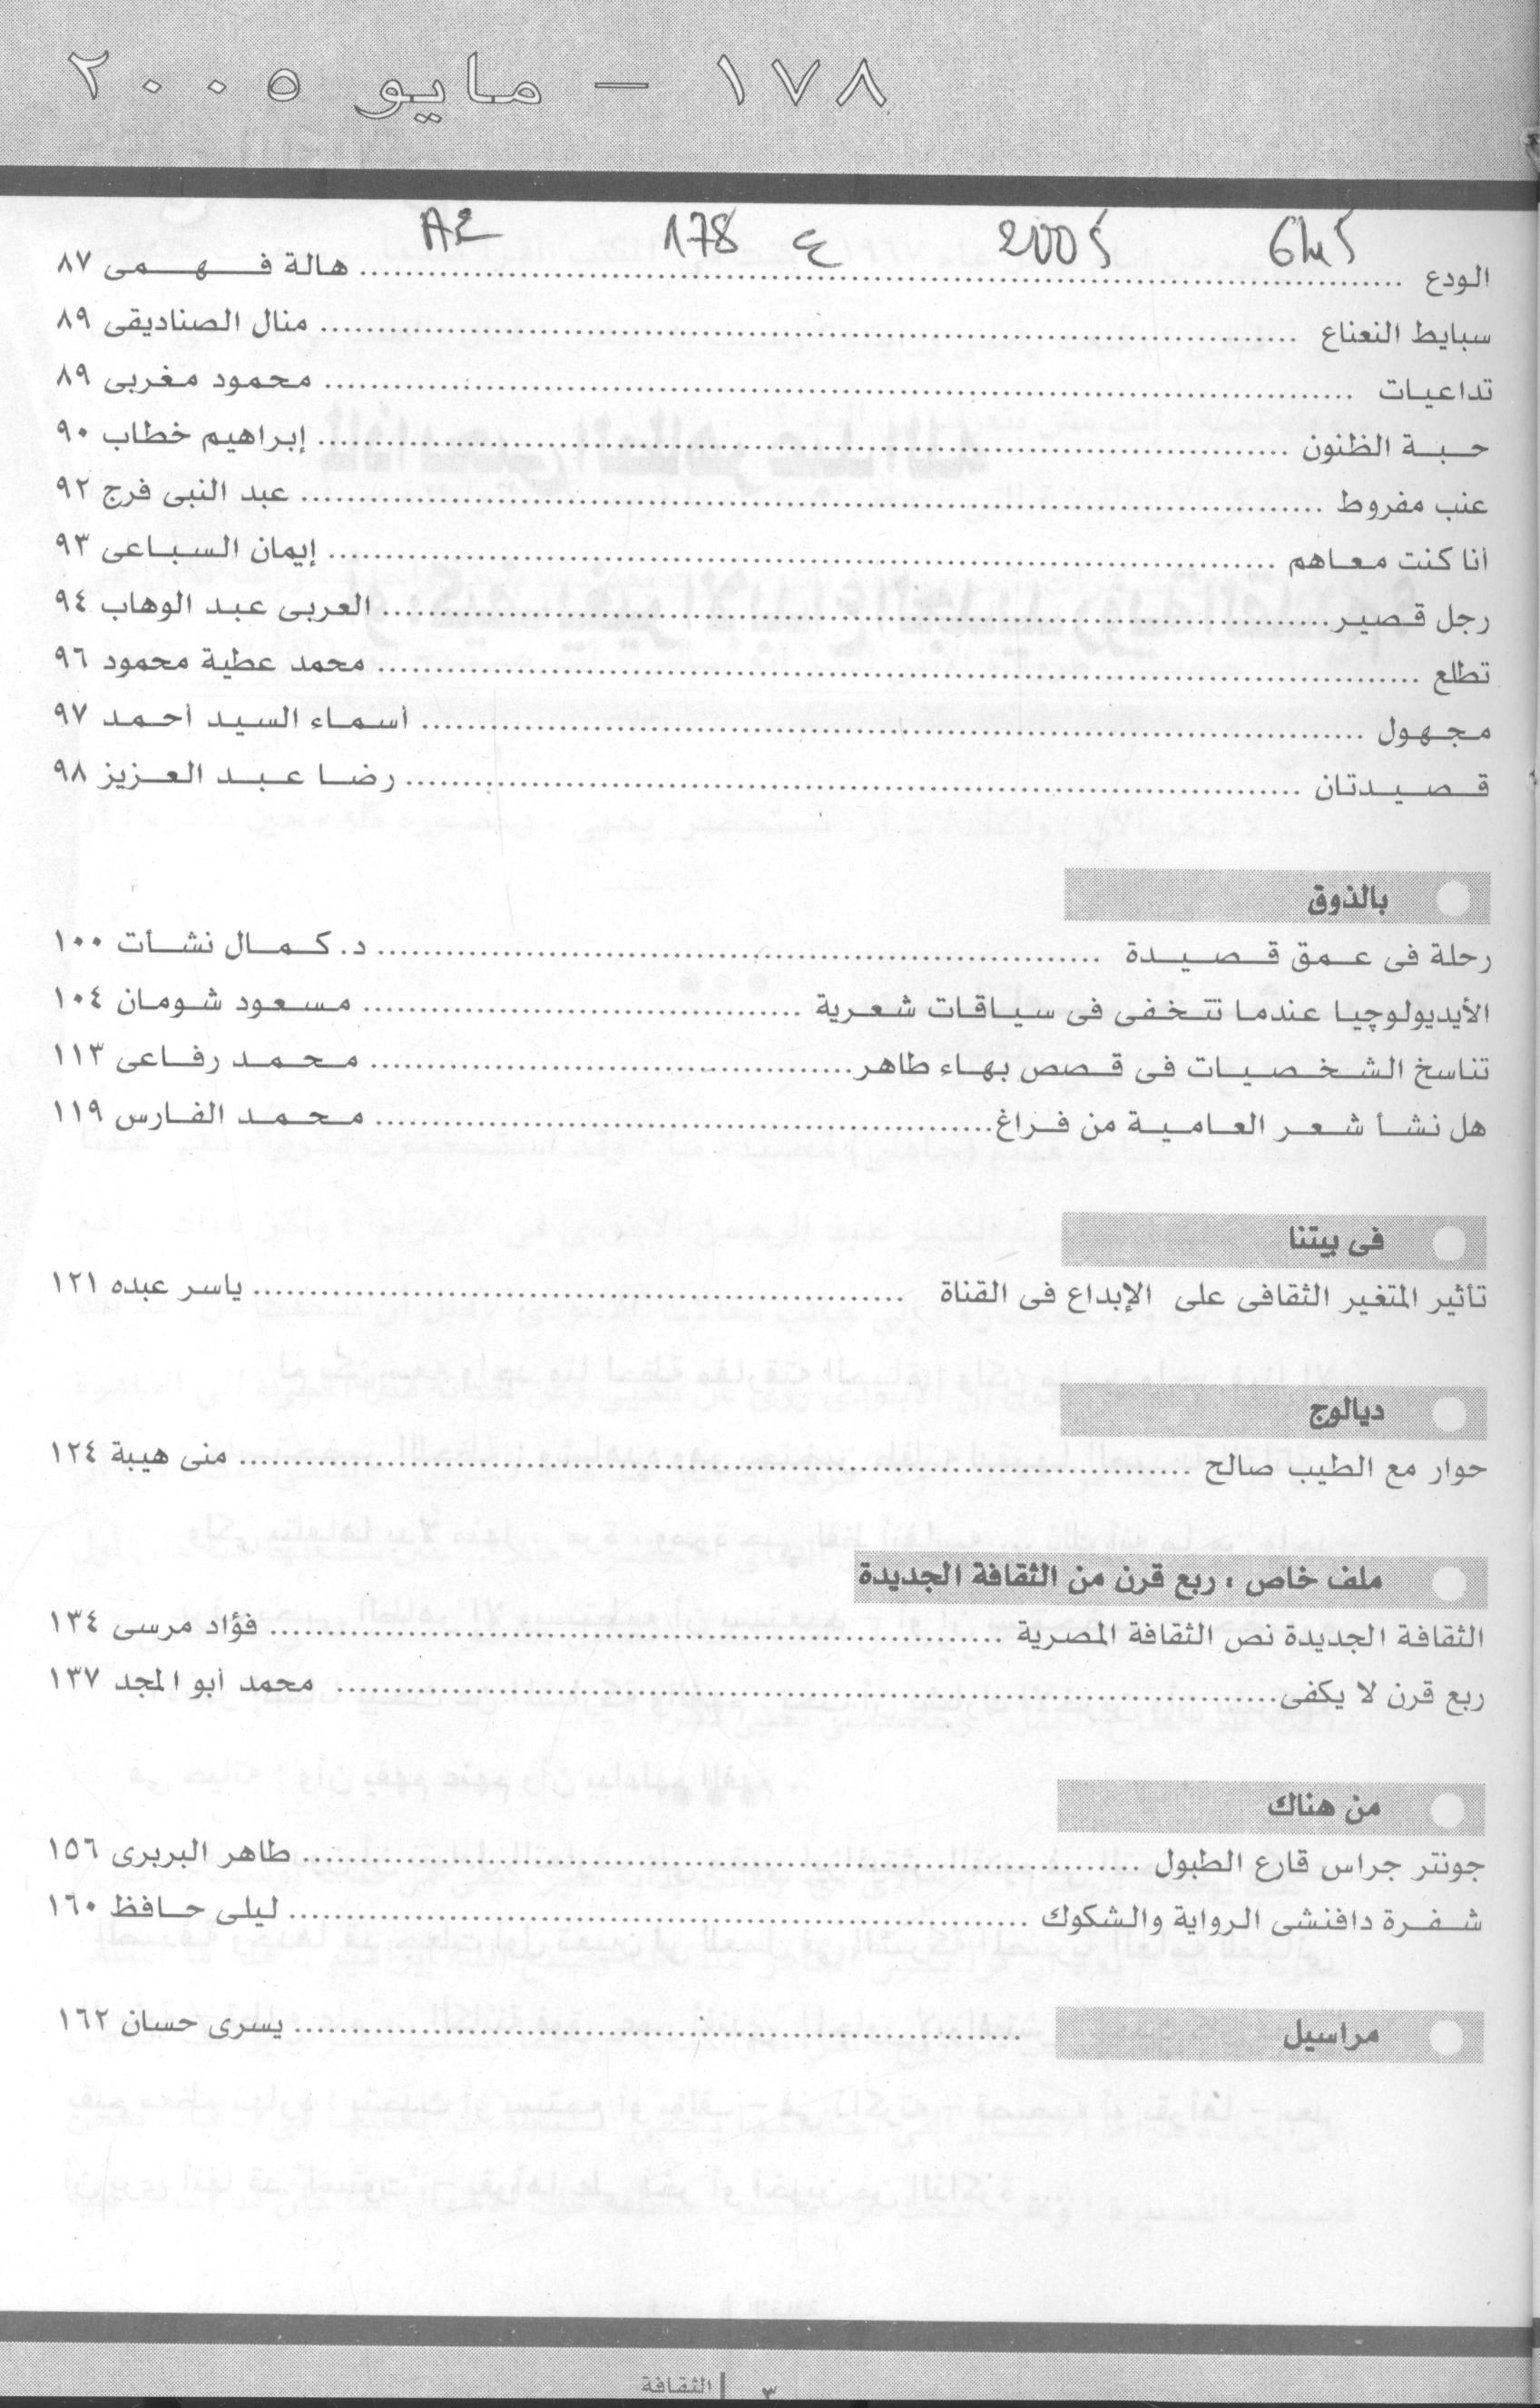 ١٧٨ – مايو ٢٠٠٥
A2 178 ع 2005
الودع ........ هالة فهمى ٨٧
سبايط النعناع ........ منال الصناديقى ٨٩
تداعيات ........ محمود مغربى ٨٩
حبة الظنون ........ إبراهيم خطاب ٩٠
عنب مفروط ........ عبد النبى فرج ٩٢
أنا كنت معاهم ........ إيمان السباعى ٩٣
رجل قصير ........ العربى عبد الوهاب ٩٤
تطلع ........ محمد عطية محمود ٩٦
مجهول ........ أسماء السيد أحمد ٩٧
قصيدتان ........ رضا عبد العزيز ٩٨
بالذوق
رحلة فى عمق قصيدة ........ د. كمال نشأت ١٠٠
الأيديولوچيا عندما تتخفى فى سياقات شعرية ........ مسعود شومان ١٠٤
تناسخ الشخصيات فى قصص بهاء طاهر ........ محمد رفاعى ١١٣
هل نشأ شعر العامية من فراغ ........ محمد الفارس ١١٩
فى بيتنا
تأثير المتغير الثقافى على الإبداع فى القناة ........ ياسر عبده ١٢١
ديالوج
حوار مع الطيب صالح ........ منى هيبة ١٢٤
ملف خاص : ربع قرن من الثقافة الجديدة
الثقافة الجديدة نص الثقافة المصرية ........ فؤاد مرسى ١٣٤
ربع قرن لا يكفى ........ محمد أبو المجد ١٣٧
من هناك
جونتر جراس قارع الطبول ........ طاهر البربرى ١٥٦
شفرة دافنشى الرواية والشكوك ........ ليلى حافظ ١٦٠
مراسيل ........ يسرى حسان ١٦٢
٣ | الثقافة